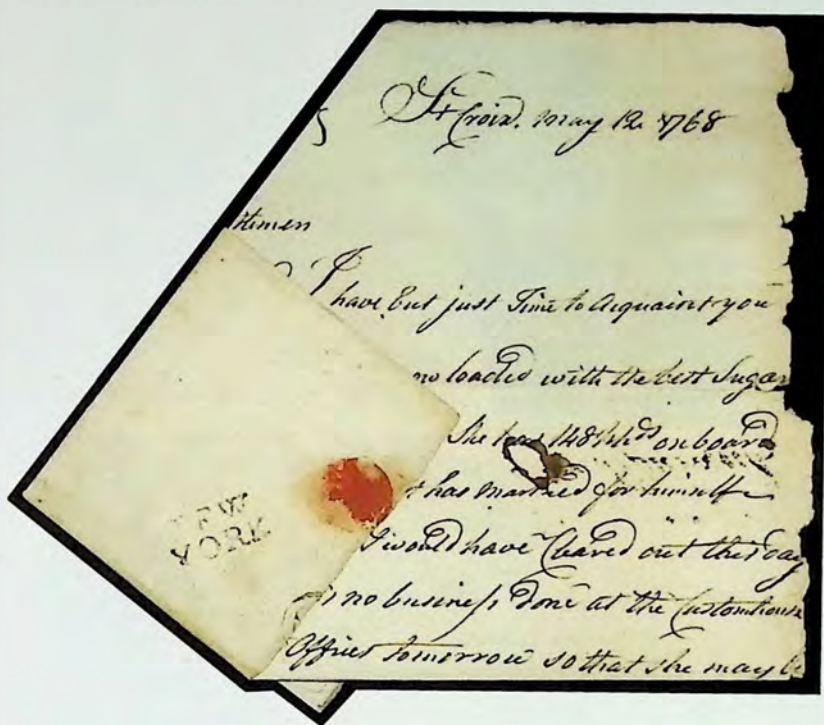 St Croix. May 12 1768
tlemen
I
have but just Time to Acquaint you
no loaded with the best Sugar
She has 148 hhds on board
t has marked for himself
I would have Cleared out this day
is no business done at the Customhouse
Office tomorrow so that she may be
NEW
YORK